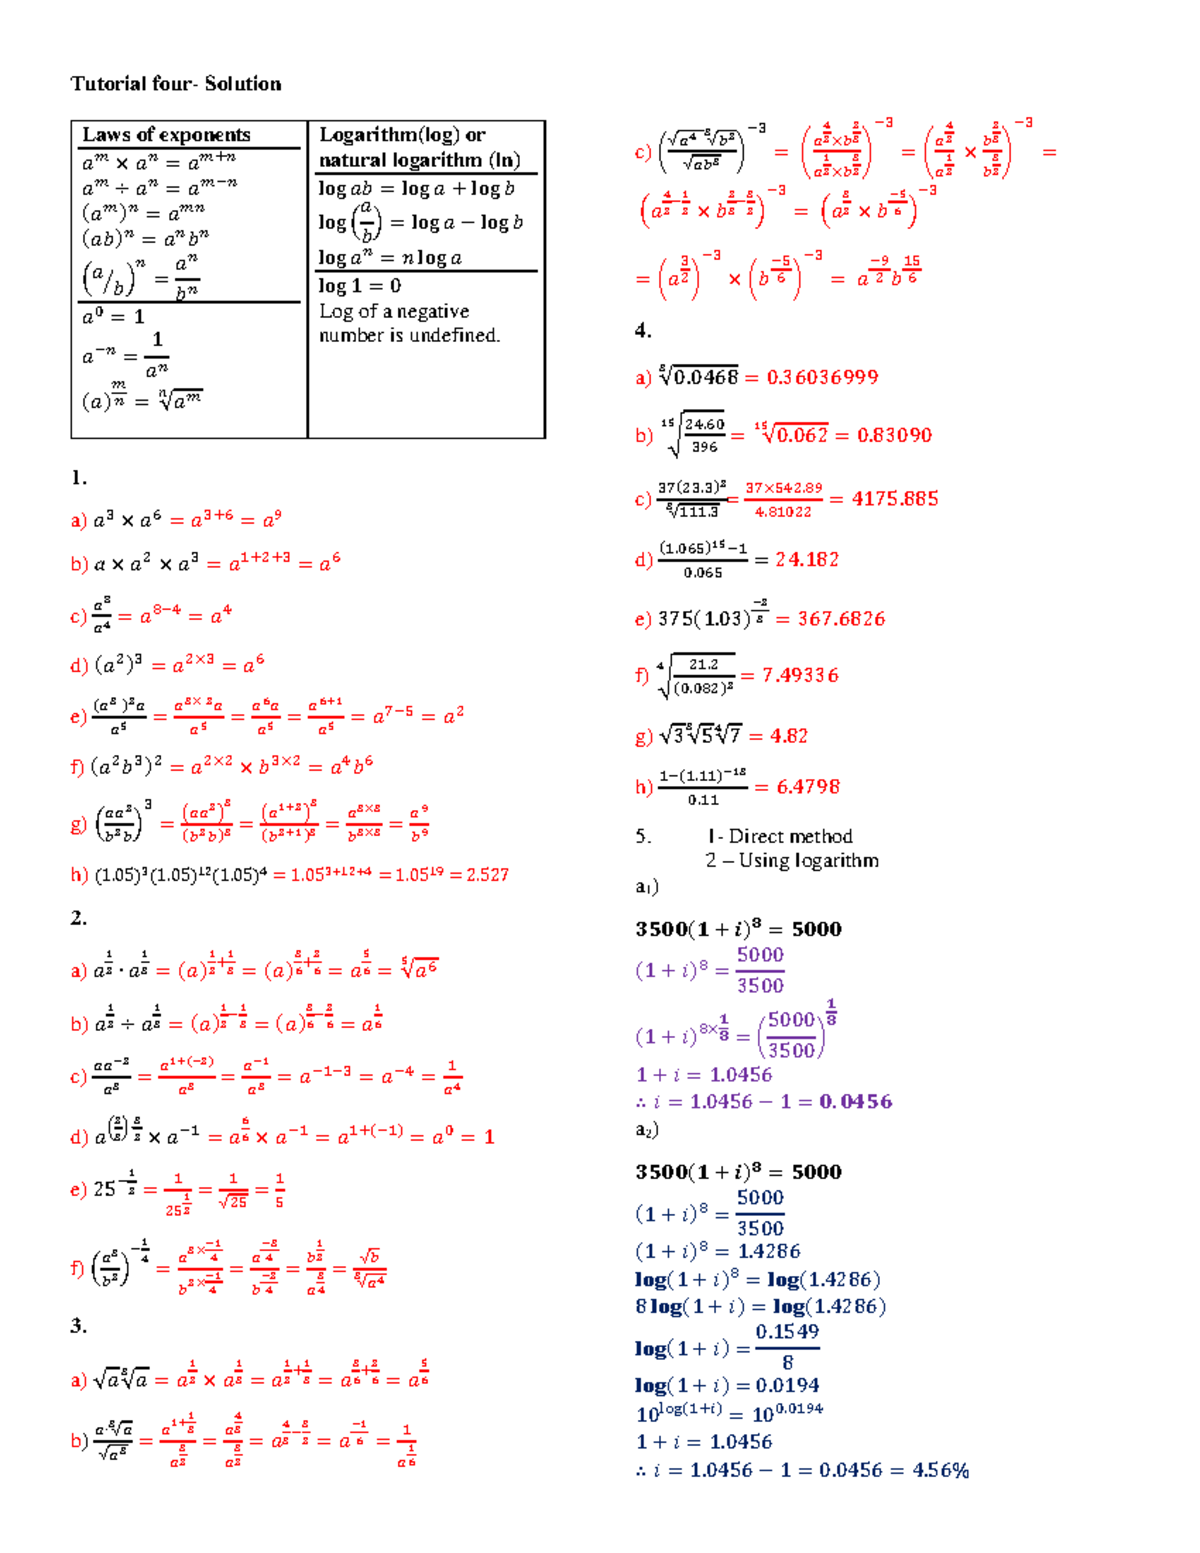 Tutorial four- Solution
Laws of exponents
a^m × a^n = a^(m+n)
a^m ÷ a^n = a^(m−n)
(a^m)^n = a^(mn)
(ab)^n = a^n b^n
(a/b)^n = a^n/b^n
a^0 = 1
a^(−n) = 1/a^n
(a)^(m/n) = ⁿ√(a^m)
Logarithm(log) or
natural logarithm (ln)
log ab = log a + log b
log (a/b) = log a − log b
log a^n = n log a
log 1 = 0
Log of a negative
number is undefined.
1.
a) a^3 × a^6 = a^(3+6) = a^9
b) a × a^2 × a^3 = a^(1+2+3) = a^6
c) a^8/a^4 = a^(8−4) = a^4
d) (a^2)^3 = a^(2×3) = a^6
e) (a^3)^2 a/a^5 = a^(3×2) a/a^5 = a^6 a/a^5 = a^(6+1)/a^5 = a^(7−5) = a^2
f) (a^2 b^3)^2 = a^(2×2) × b^(3×2) = a^4 b^6
g) (aa^2/b^2 b)^3 = (aa^2)^3/(b^2 b)^3 = (a^(1+2))^3/(b^(2+1))^3 = a^(3×3)/b^(3×3) = a^9/b^9
h) (1.05)^3(1.05)^12(1.05)^4 = 1.05^(3+12+4) = 1.05^19 = 2.527
2.
a) a^(1/2) · a^(1/3) = (a)^(1/2+1/3) = (a)^(3/6+2/6) = a^(5/6) = ⁵√(a^6)
b) a^(1/2) ÷ a^(1/3) = (a)^(1/2−1/3) = (a)^(3/6−2/6) = a^(1/6)
c) aa^(−2)/a^3 = a^(1+(−2))/a^3 = a^(−1)/a^3 = a^(−1−3) = a^(−4) = 1/a^4
d) a^((2/3)(3/2)) × a^(−1) = a^(6/6) × a^(−1) = a^(1+(−1)) = a^0 = 1
e) 25^(−1/2) = 1/25^(1/2) = 1/√25 = 1/5
f) (a^3/b^2)^(−1/4) = a^(3×−1/4)/b^(2×−1/4) = a^(−3/4)/b^(−2/4) = b^(1/2)/a^(3/4) = √b/³√(a^4)
3.
a) √a ³√a = a^(1/2) × a^(1/3) = a^(1/2+1/3) = a^(3/6+2/6) = a^(5/6)
b) a·³√a/√(a^3) = a^(1+1/3)/a^(3/2) = a^(4/3)/a^(3/2) = a^(4/3−3/2) = a^(−1/6) = 1/a^(1/6)
c) (√(a^4) ³√(b^2)/√(ab^3))^(−3) = (a^(4/2)×b^(2/3)/a^(1/2)×b^(3/2))^(−3) = (a^(4/2)/a^(1/2) × b^(2/3)/b^(3/2))^(−3) =
(a^(4/2−1/2) × b^(2/3−3/2))^(−3) = (a^(3/2) × b^(−5/6))^(−3)
= (a^(3/2))^(−3) × (b^(−5/6))^(−3) = a^(−9/2) b^(15/6)
4.
a) ³√0.0468 = 0.36036999
b) ¹⁵√(24.60/396) = ¹⁵√0.062 = 0.83090
c) 37(23.3)^2/³√111.3 = 37×542.89/4.81022 = 4175.885
d) (1.065)^15−1/0.065 = 24.182
e) 375(1.03)^(−2/3) = 367.6826
f) ⁴√(21.2/(0.082)^2) = 7.49336
g) √3 ³√5 ⁴√7 = 4.82
h) 1−(1.11)^(−12)/0.11 = 6.4798
5. 1- Direct method
2 – Using logarithm
a₁)
3500(1 + i)^8 = 5000
(1 + i)^8 = 5000/3500
(1 + i)^(8×1/8) = (5000/3500)^(1/8)
1 + i = 1.0456
∴ i = 1.0456 − 1 = 0.0456
a₂)
3500(1 + i)^8 = 5000
(1 + i)^8 = 5000/3500
(1 + i)^8 = 1.4286
log(1 + i)^8 = log(1.4286)
8 log(1 + i) = log(1.4286)
log(1 + i) = 0.1549/8
log(1 + i) = 0.0194
10^(log(1+i)) = 10^0.0194
1 + i = 1.0456
∴ i = 1.0456 − 1 = 0.0456 = 4.56%